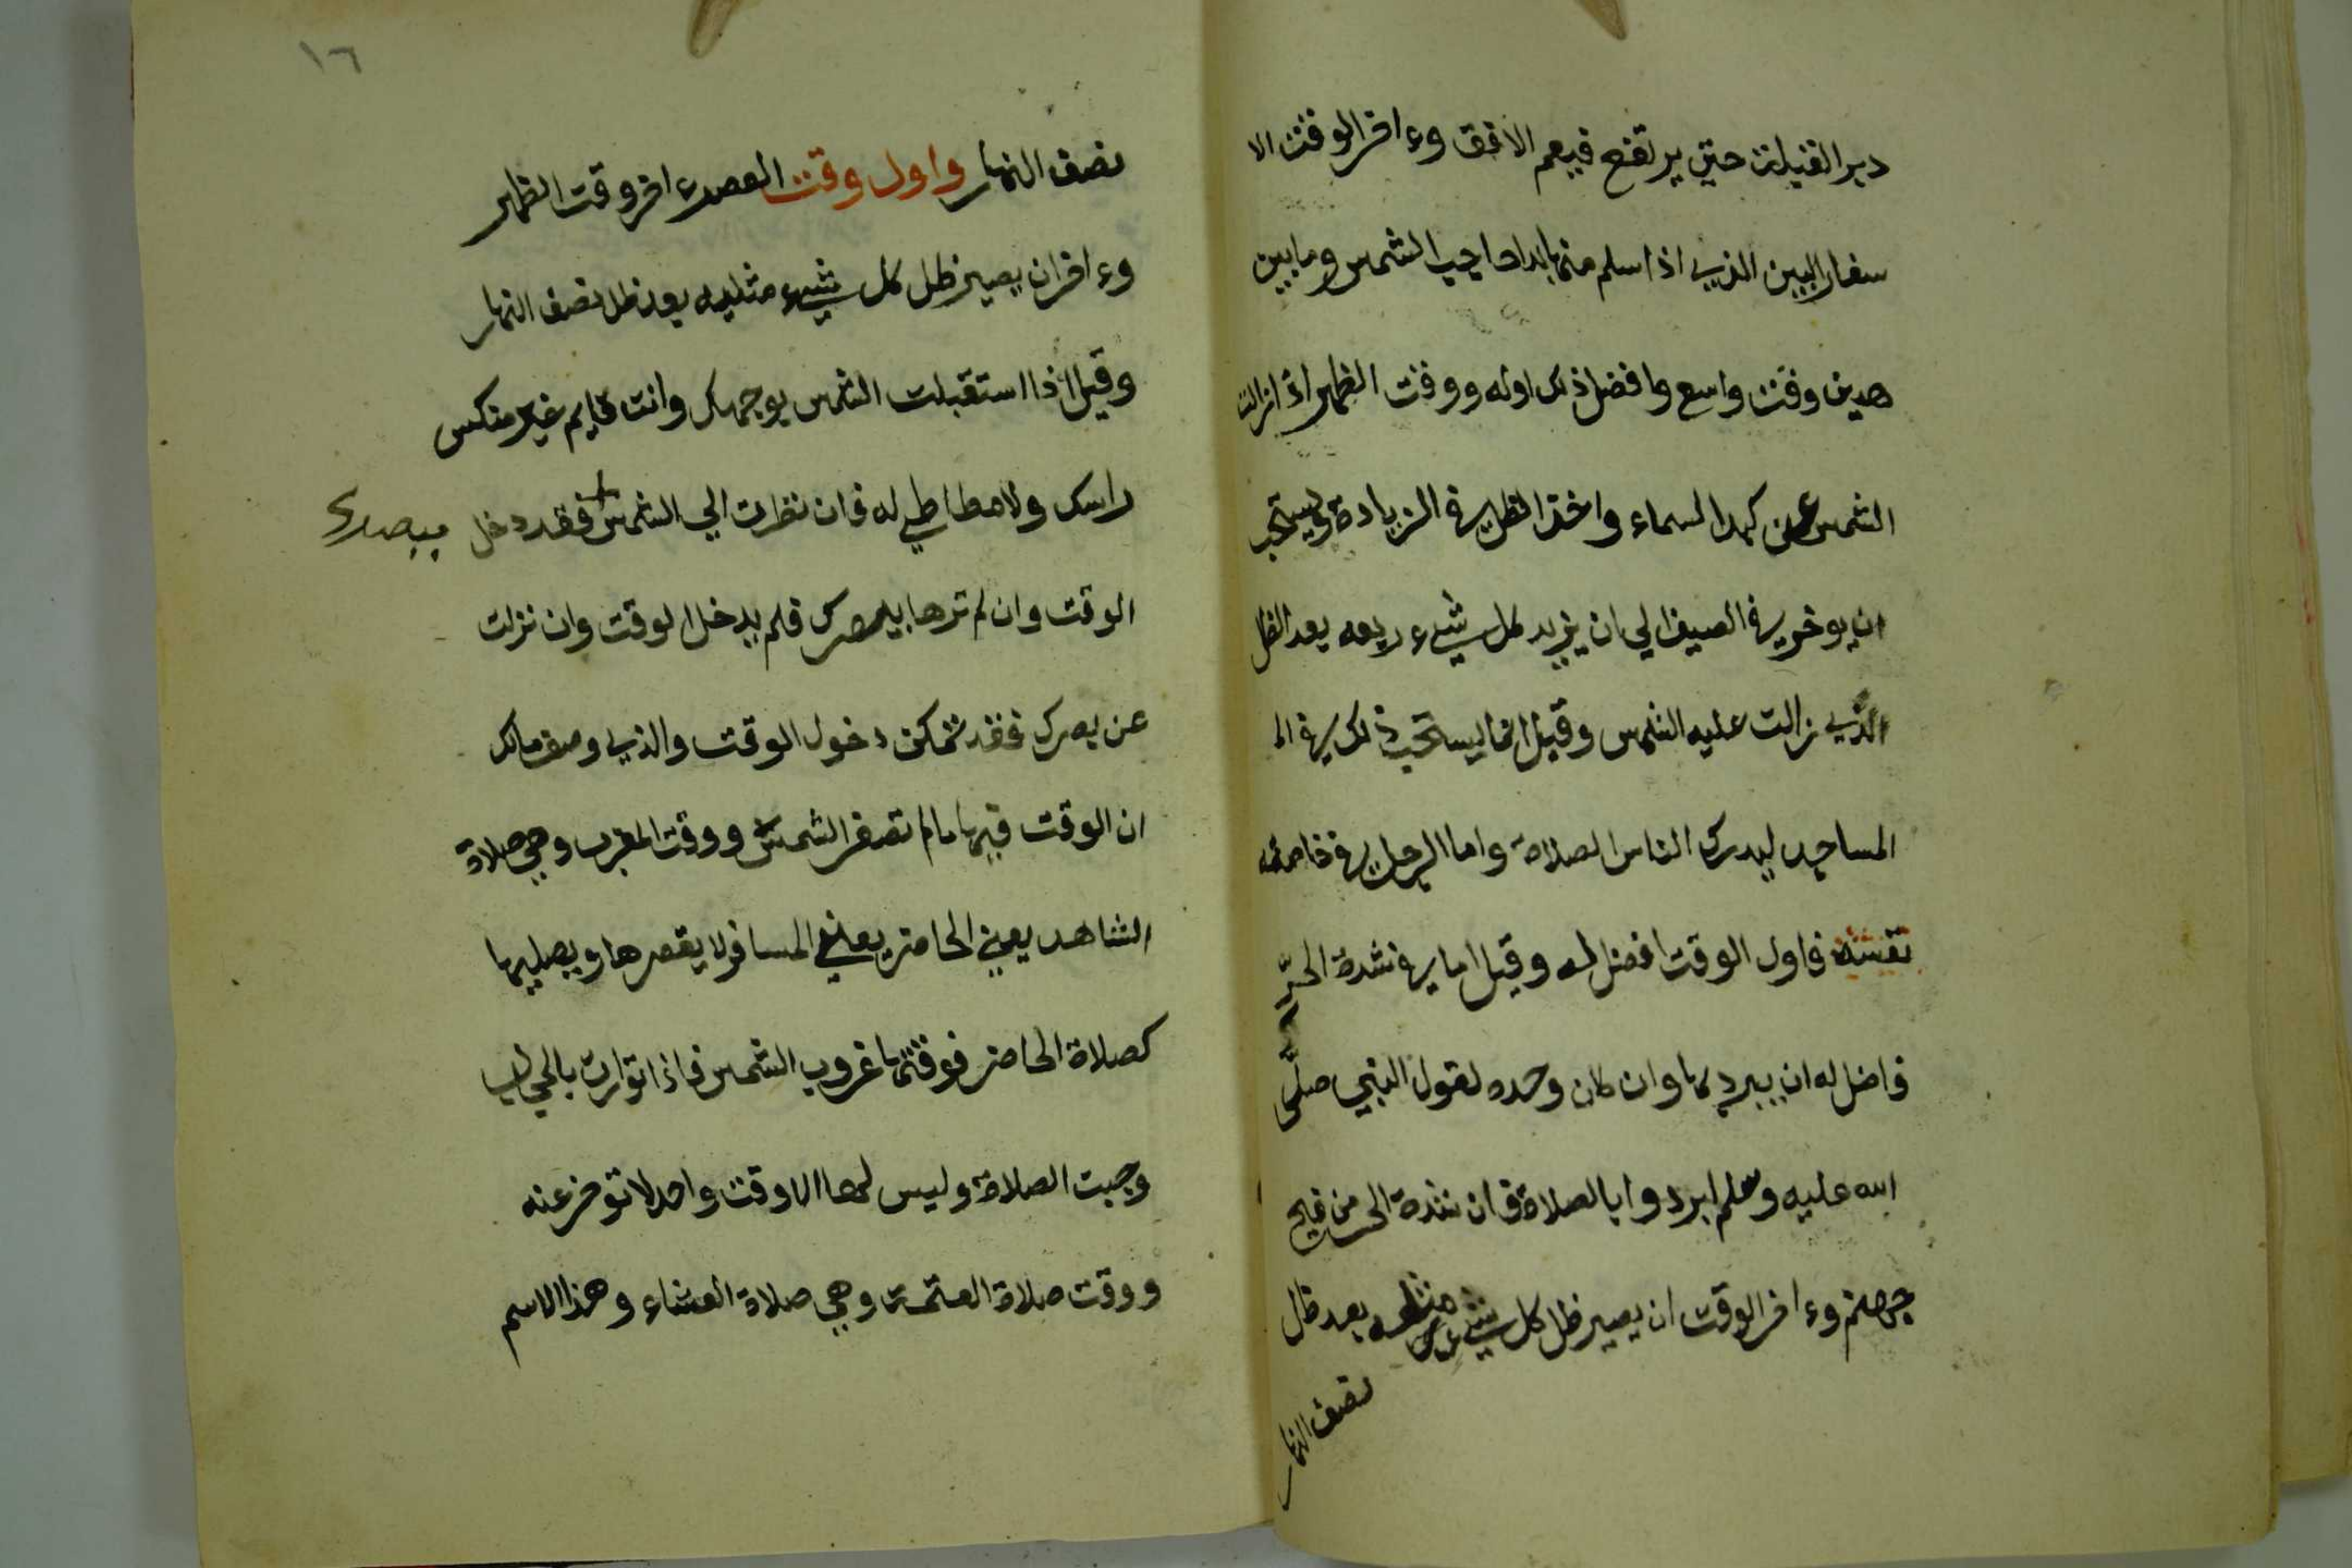 دبر القبلت حتي يرتفع فيعم الافق وءاخر الوقت الا
سفار البين الذي اذا سلم منها بدا حاجب الشمس وما بين
هدين وقت واسع وافضل ذلك اوله ووقت الظهر اذا زالت
الشمس عن كبد السماء واخذ الظل في الزيادة ويستحب
ان يوخر في الصيف الي ان يزيد كل شيء ربعه بعد الظل
الذي زالت عليه الشمس وقيل انما يستحب ذلك في الـ
المساجد ليدرك الناس الصلاة واما الرجل في خاصة
نفسه فاول الوقت افضل له وقيل اما في شدة الحرّ
فاضل له ان يبرد بها وان كان وحده لقول النبي صلّى
الله عليه وسلم ابردوا بالصلاة فان شدة الحر من فيح
جهنم وءاخر الوقت ان يصير ظل كل شيء مثله بعد ظل
نصف النهار
١٦
نصف النهار واول وقت العصر ءاخر وقت الظهر
وءاخر ان يصير ظل كل شيء مثليه بعد ظل نصف النهار
وقيل اذا استقبلت الشمس بوجهك وانت قايم غير منكس
راسك ولا مطاطي له فان نظرت الي الشمس فقد دخل
ببصرك
الوقت وان لم ترها ببصرك فلم يدخل الوقت وان نزلت
عن بصرك فقد تمكن دخول الوقت والذي وصف مالك
ان الوقت فيها ما لم تصفر الشمس ووقت المغرب وهي صلاة
الشاهد يعني الحاضر يعني المسافر لا يقصرها ويصليها
كصلاة الحاضر فوقتها غروب الشمس فاذا توارت بالحجاب
وجبت الصلاة وليس لها الا وقت واحد لا توخر عنه
ووقت صلاة العتمة وهي صلاة العشاء وهذا الاسم